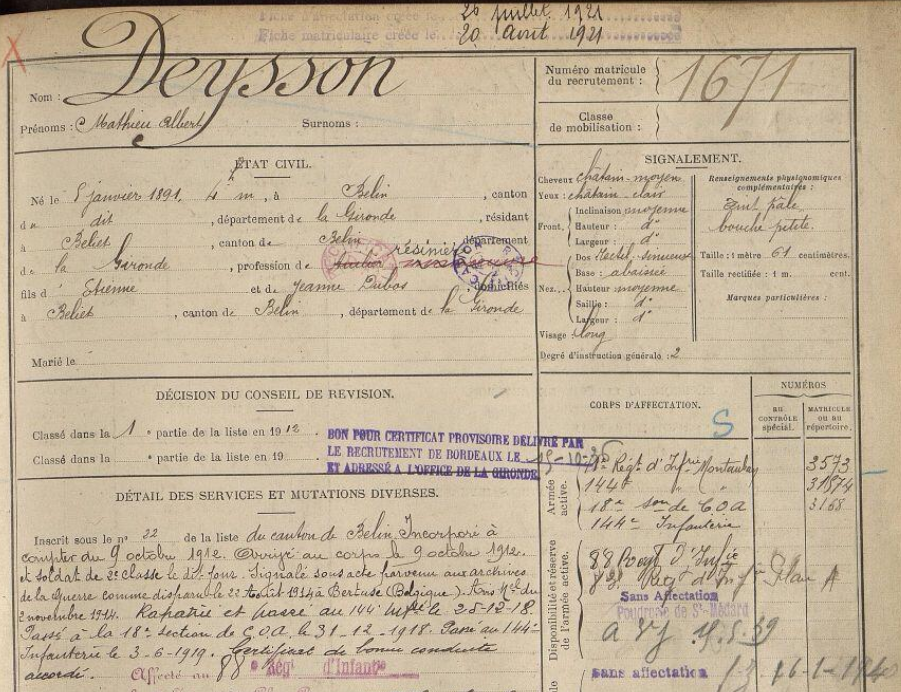 Fiche d'affectation créée le 20 juillet 1921
Fiche matriculaire créée le 20 Avril 1921
Nom : Deysson
Prénoms : Mathieu Albert Surnoms :
Numéro matricule du recrutement : 1671
Classe de mobilisation :
ÉTAT CIVIL.
Né le 8 janvier 1891, 4 h m, à Belin, canton
du dit, département de la Gironde, résidant
à Beliet, canton de Belin, département
de la Gironde, profession de résinier
fils d' Etienne et de Jeanne Dubos, domiciliés
à Beliet, canton de Belin, département de la Gironde
Marié le
SIGNALEMENT.
Cheveux châtain-moyen
Yeux : châtain-clair
Front, Inclinaison moyenne
Hauteur : d°
Largeur : d°
Nez... Dos Rectil. sinueux
Base : abaissée
Hauteur moyenne
Saillie : d°
Largeur : d°
Visage long
Renseignements physionomiques complémentaires :
Teint pâle
bouche petite.
Taille : 1 mètre 61 centimètres.
Taille rectifiée : 1 m. cent.
Marques particulières :
Degré d'instruction générale : 2
DÉCISION DU CONSEIL DE REVISION.
Classé dans la 1 e partie de la liste en 1912
Classé dans la e partie de la liste en 19
BON POUR CERTIFICAT PROVISOIRE DÉLIVRÉ PAR
LE RECRUTEMENT DE BORDEAUX LE 15-10-36
ET ADRESSÉ A L'OFFICE DE LA GIRONDE.
CORPS D'AFFECTATION.
NUMÉROS
AU CONTRÔLE spécial.
MATRICULE OU AU répertoire.
S
Armée active.
Régt d'Infrie Montauban 3573
144e 31874
18e son de C.O.A 3168
144e Infanterie
DÉTAIL DES SERVICES ET MUTATIONS DIVERSES.
Inscrit sous le n° 22 de la liste du canton de Belin. Incorporé à
compter du 9 octobre 1912. Arrivé au corps le 9 octobre 1912.
et soldat de 2e classe le dit jour. Signalé sous acte parvenu aux archives
de la Guerre comme disparu le 22 août 1914 à Bertrix (Belgique). du
2 novembre 1914. Rapatrié et passé au 144e Inf le 28-12-18.
Passé à la 18e section de C.O.A. le 31-12-1918. Passé au 144e
Infanterie le 3-6-1919. Certificat de bonne conduite
accordé. Affecté au 88 e Régt d'Infantie
Disponibilité et réserve de l'armée active.
88 Régt d'Infie
83 Régt d'Infie Plan A
Sans Affectation
Poudrerie de St-Médard
Sans affectation
16-1-1940